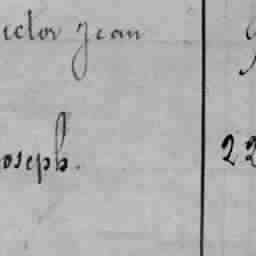 ictor Jean
oseph. 22